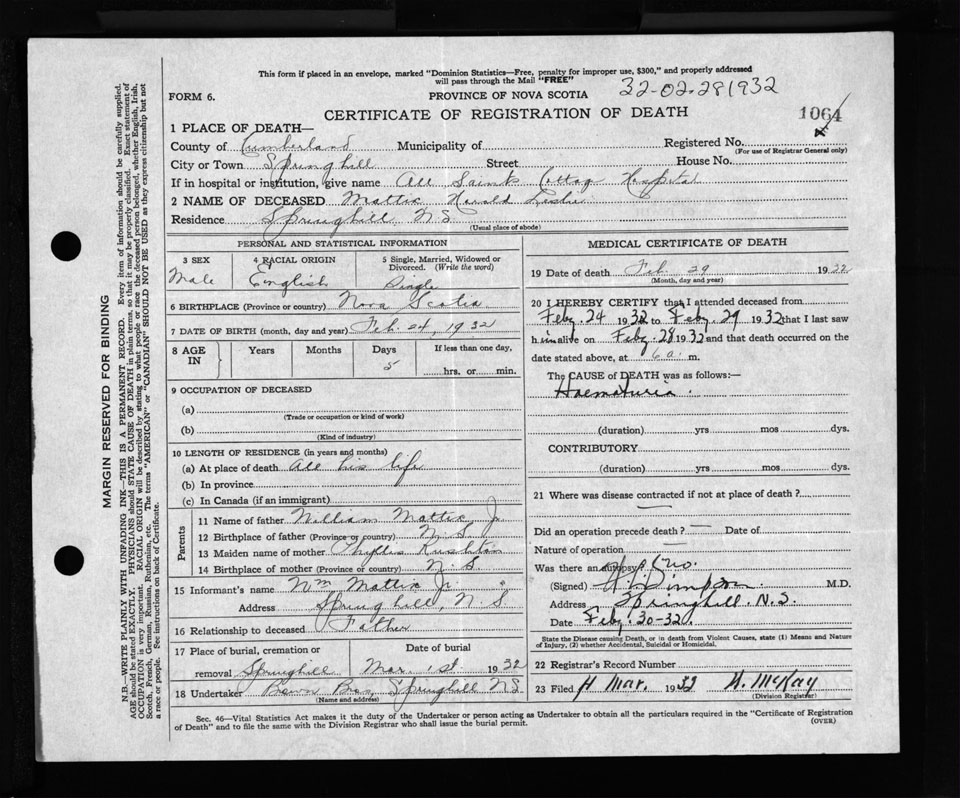 This form if placed in an envelope, marked "Dominion Statistics—Free, penalty for improper use, $300," and properly addressed
will pass through the Mail "FREE"
32-02-281932
FORM 6.
PROVINCE OF NOVA SCOTIA
CERTIFICATE OF REGISTRATION OF DEATH
1064
1 PLACE OF DEATH—
County of Cumberland Municipality of Registered No.
(For use of Registrar General only)
City or Town Springhill Street House No.
If in hospital or institution, give name All Saints Cottage Hospital
2 NAME OF DECEASED Mattix Harold Leslie
Residence Springhill, N.S.
(Usual place of abode)
PERSONAL AND STATISTICAL INFORMATION
3 SEX 4 RACIAL ORIGIN 5 Single, Married, Widowed or
Divorced. (Write the word)
Male English Single
6 BIRTHPLACE (Province or country) Nova Scotia
7 DATE OF BIRTH (month, day and year) Feb. 24, 1932
8 AGE IN Years Months Days If less than one day,
5 hrs. or min.
9 OCCUPATION OF DECEASED
(a)
(Trade or occupation or kind of work)
(b)
(Kind of industry)
10 LENGTH OF RESIDENCE (in years and months)
(a) At place of death All his life
(b) In province
(c) In Canada (if an immigrant)
Parents
11 Name of father William Mattix Jr
12 Birthplace of father (Province or country) N.S.
13 Maiden name of mother Phyllis Rushton
14 Birthplace of mother (Province or country) N.S.
15 Informant's name Wm Mattix Jr
Address Springhill, N.S.
16 Relationship to deceased Father
17 Place of burial, cremation or removal Date of burial
Springhill Mar. 1st. 1932
18 Undertaker Brown Bros, Springhill N.S.
(Name and address)
MEDICAL CERTIFICATE OF DEATH
19 Date of death Feb. 29 1932
(Month, day and year)
20 I HEREBY CERTIFY that I attended deceased from
Feby. 24 1932 to Feby. 29 1932 that I last saw
him alive on Feby. 28 1932 and that death occurred on the
date stated above, at 6 a. m.
The CAUSE of DEATH was as follows:—
Haematuria.
(duration) yrs mos dys.
CONTRIBUTORY
(duration) yrs. mos. dys.
21 Where was disease contracted if not at place of death?
—
Did an operation precede death? — Date of
Nature of operation —
Was there an autopsy? No.
(Signed) Simpson M.D.
Address Springhill. N.S.
Date Feby. 30-32.
State the Disease causing Death, or in death from Violent Causes, state (1) Means and Nature
of Injury, (2) whether Accidental, Suicidal or Homicidal.
22 Registrar's Record Number
23 Filed 4 Mar. 1932 McKay
(Division Registrar)
Sec. 46—Vital Statistics Act makes it the duty of the Undertaker or person acting as Undertaker to obtain all the particulars required in the "Certificate of Registration
of Death" and to file the same with the Division Registrar who shall issue the burial permit.
(OVER)
MARGIN RESERVED FOR BINDING
N.B.—WRITE PLAINLY WITH UNFADING INK—THIS IS A PERMANENT RECORD. Every item of information should be carefully supplied.
AGE should be stated EXACTLY. PHYSICIANS should STATE CAUSE OF DEATH in plain terms, so that it may be properly classified. Exact statement of
OCCUPATION is very important. RACIAL ORIGIN will be described by stating to what people or race the deceased person belonged, whether English, Irish,
Scotch, French, German, Russian, Ruthenian, etc. The terms "AMERICAN" or "CANADIAN" SHOULD NOT BE USED as they express citizenship but not
a race or people. See instructions on back of Certificate.